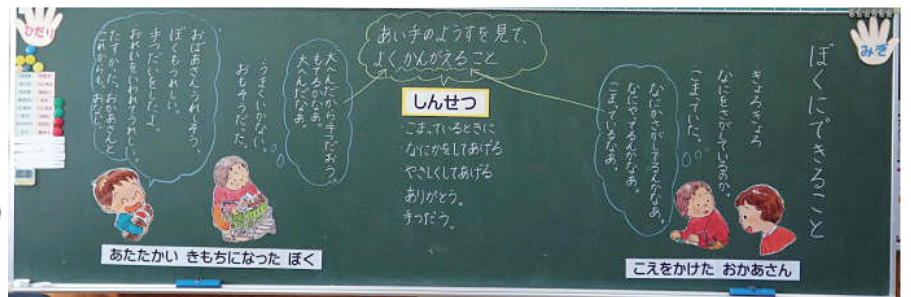 ぼくにできること
みぎ
きょろきょろ
なにをさがしているのか、
こまっていた。
なにかさがしてるんかなあ。
なにやってるんかなあ。
こまっているなあ。
こえをかけた おかあさん
あい手のようすを見て、
よくかんがえること
しんせつ
こまっているときに
なにかをしてあげる
やさしくしてあげる
ありがとう。
手つだう。
大へんだから手つだおう。
もてるかなあ。
大へんだなあ。
うまくいかない。
おもそうだった。
おばあさん、うれしそう。
ぼくもうれしい。
手つだいをしたよ。
おれいをいわれてうれしい。
たすかった。おかあさんと
あたたかい きもちになった ぼく
ひだり